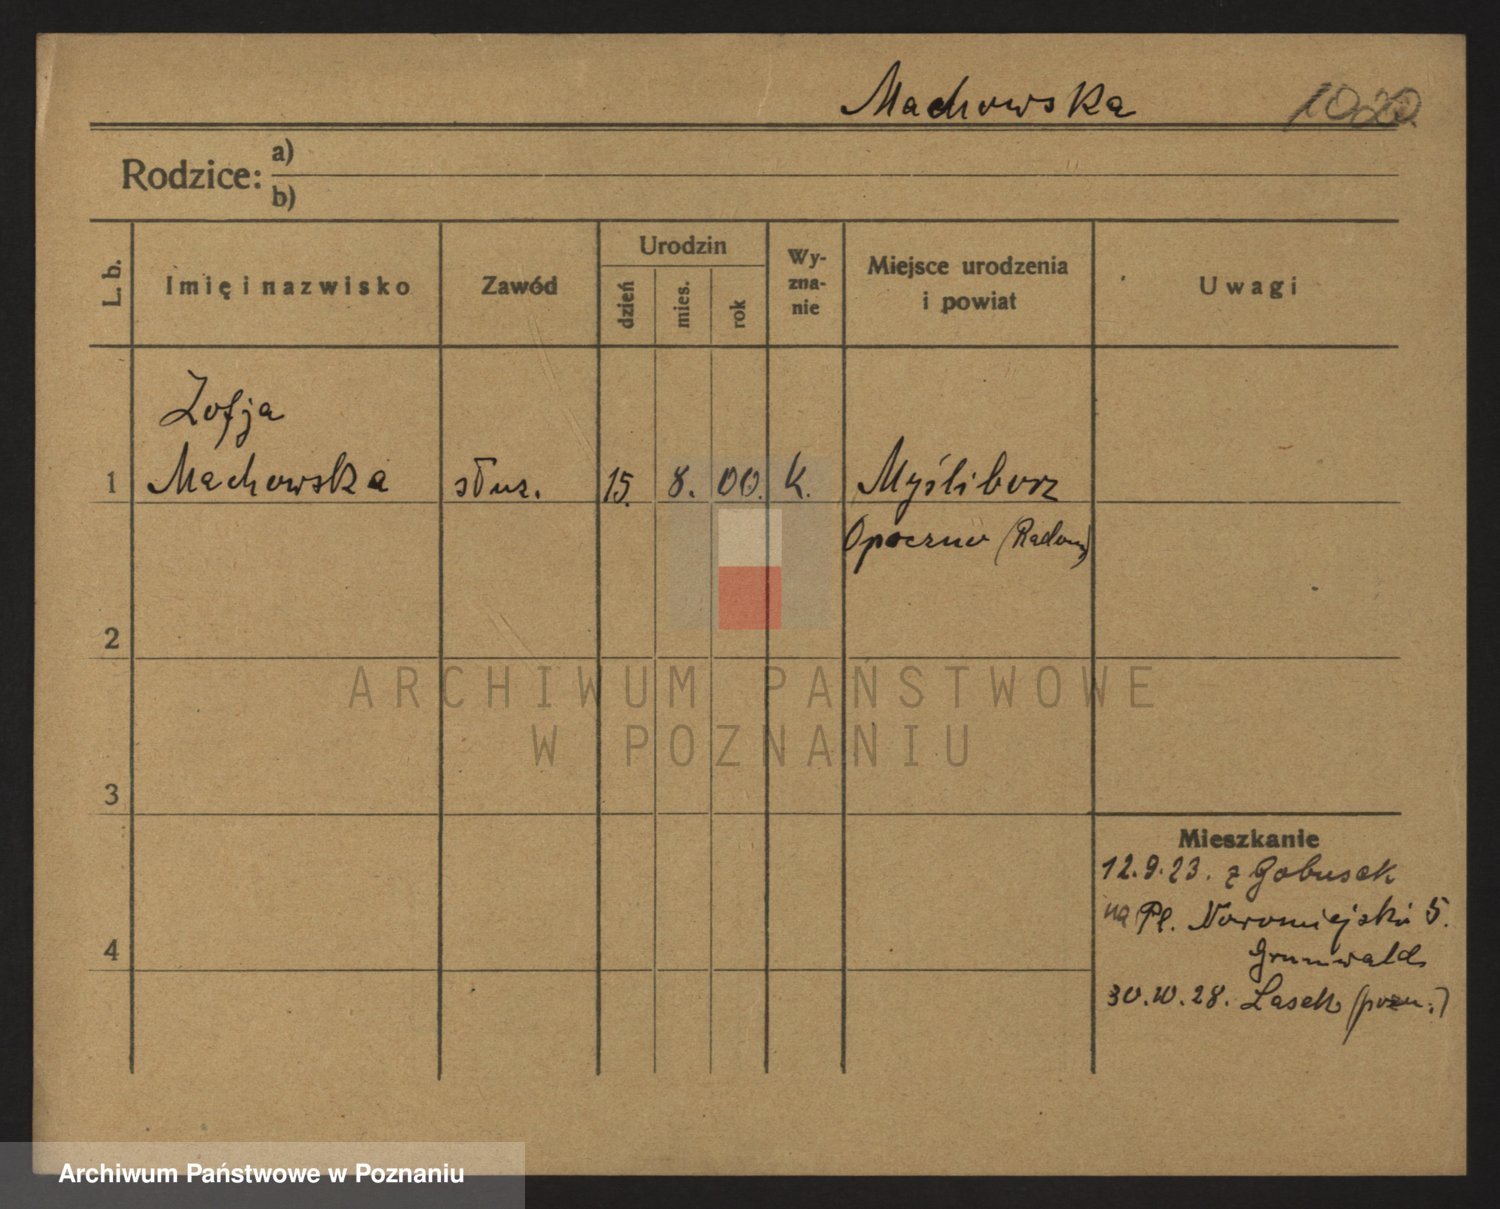 Machowska
Rodzice: a)
b)
L. b.
Imię i nazwisko
Zawód
Urodzin
dzień
mies.
rok
Wy-
zna-
nie
Miejsce urodzenia
i powiat
Uwagi
Zofja
1 Machowska służ. 15. 8. 00. k. Myślibórz
Opoczno (Radom)
2
3
4
Mieszkanie
12.9.23. z Gobusek
na Pl. Nowomiejski 5.
Grunwald
30.10.28. Lasek (pozn.)
ARCHIWUM PAŃSTWOWE
W POZNANIU
Archiwum Państwowe w Poznaniu